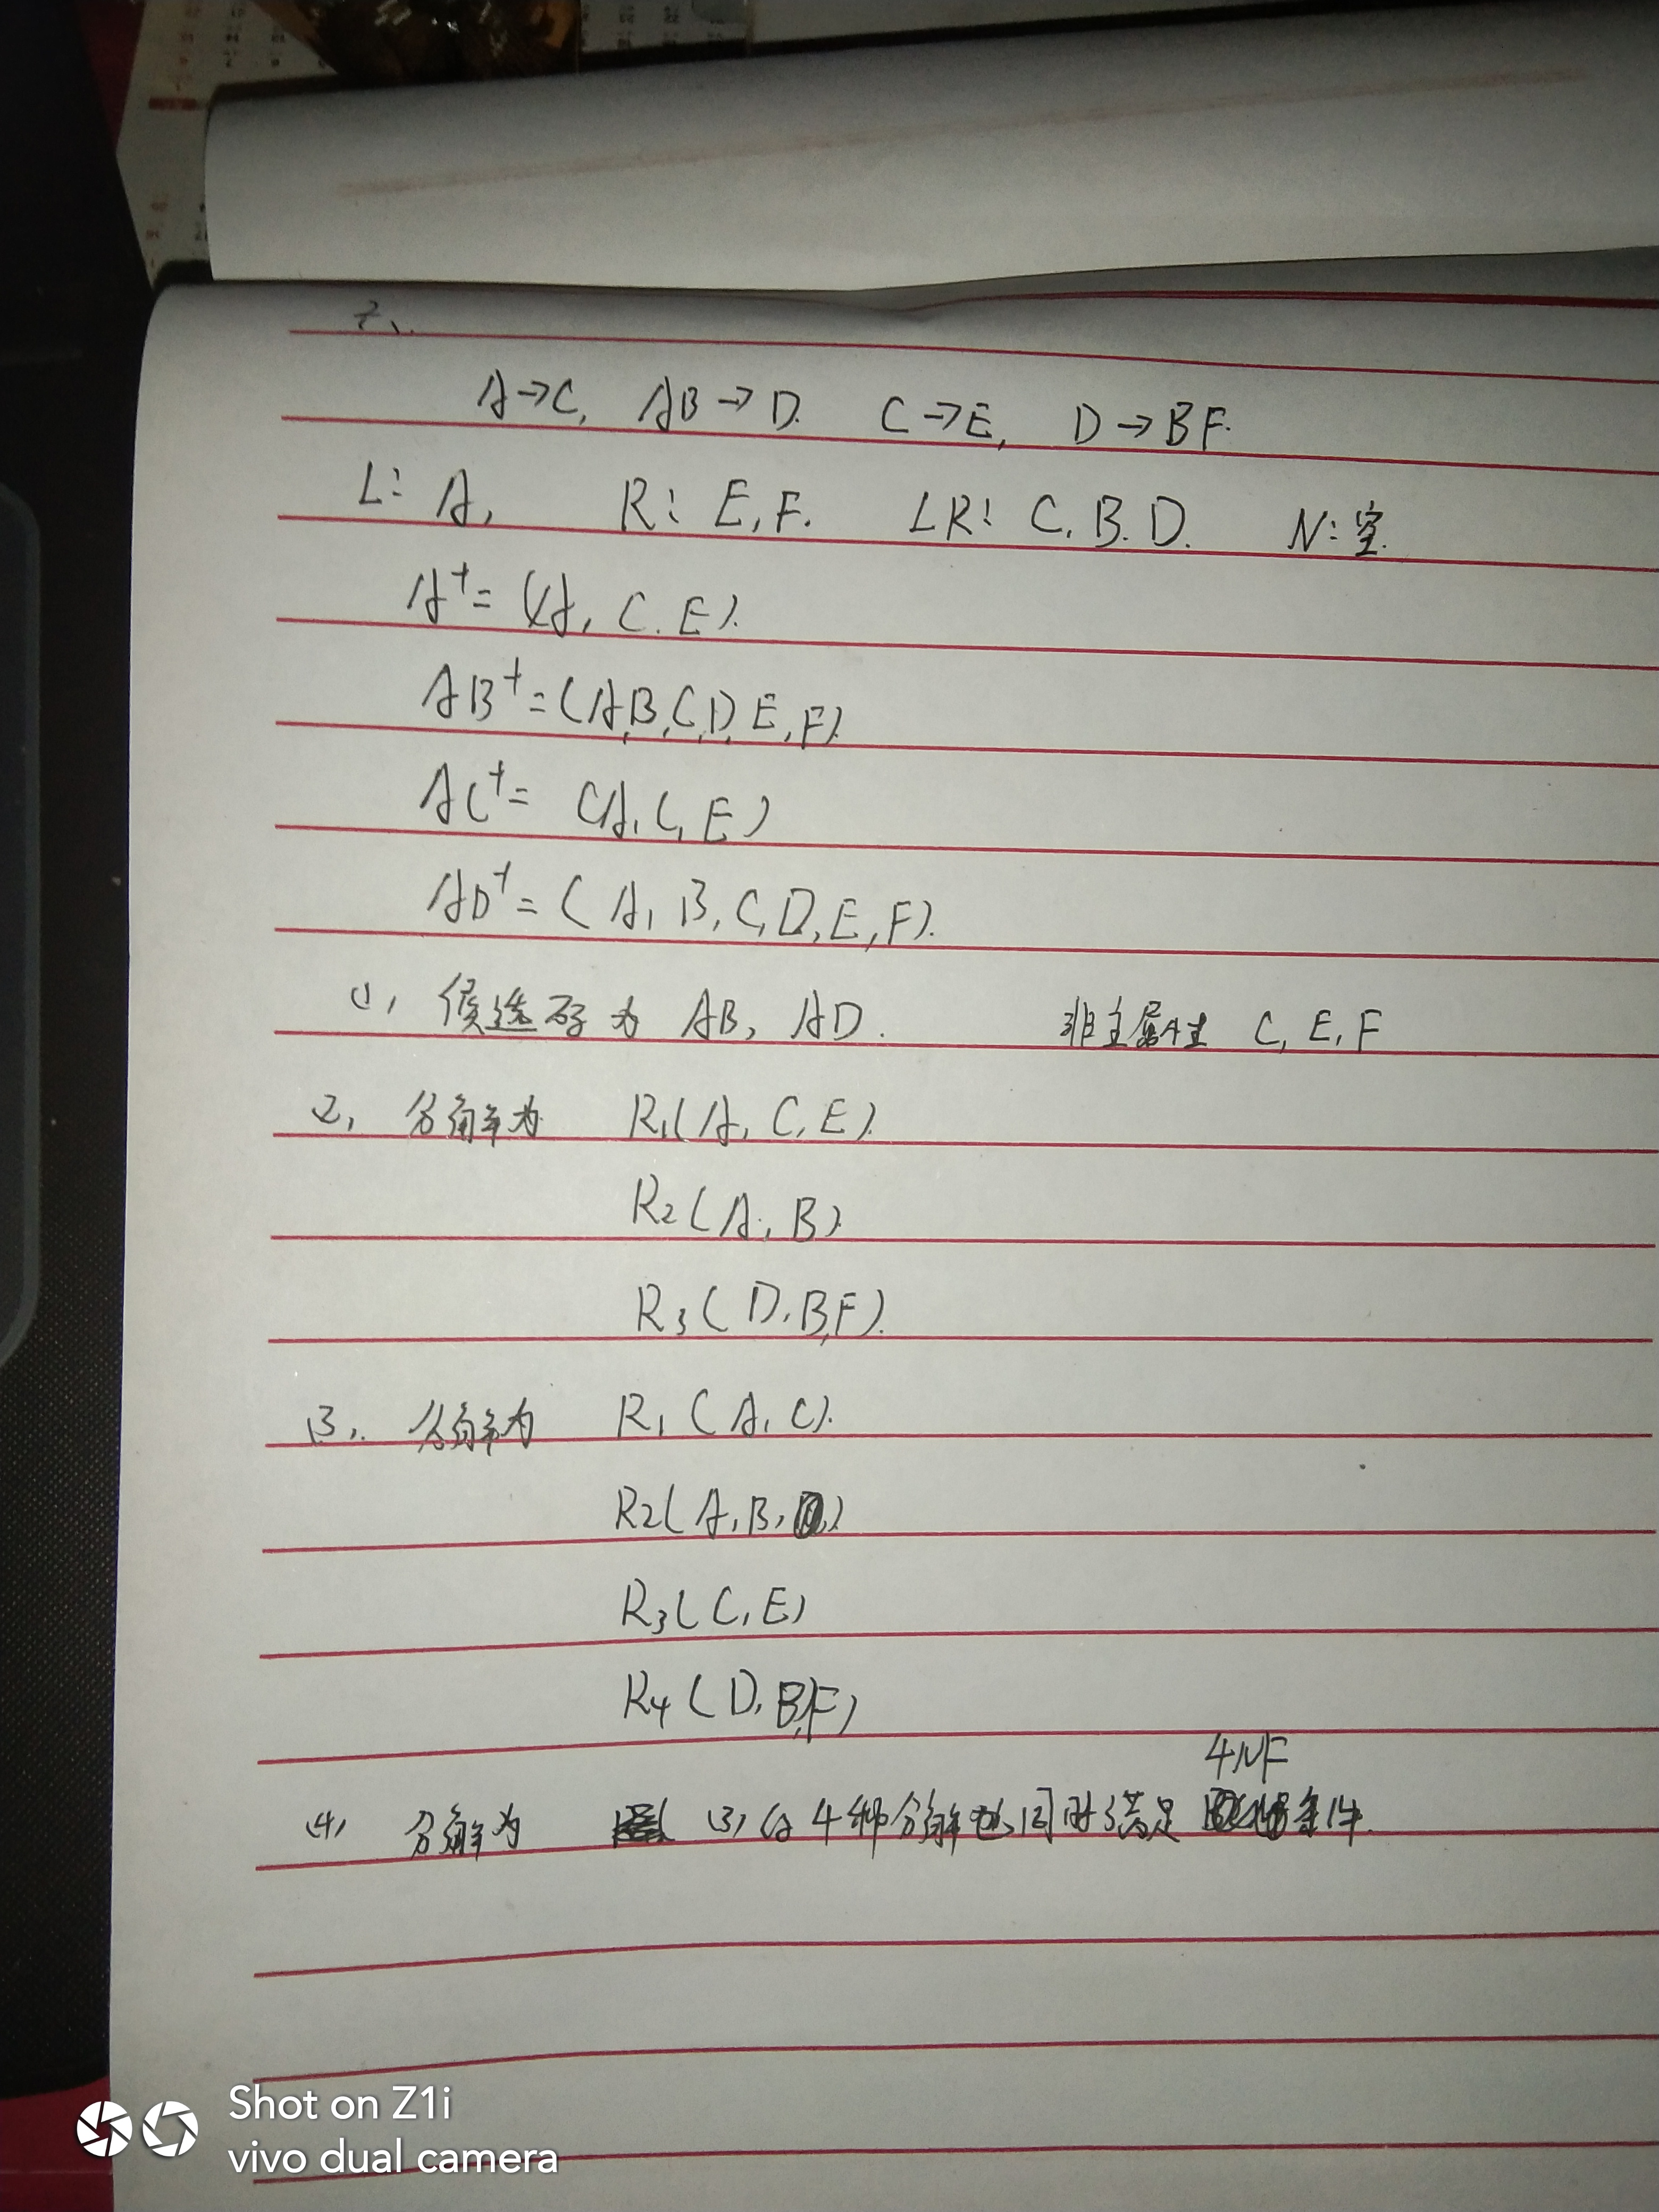 二、
A→C, AB→D. C→E, D→BF.
L: A, R: E,F. LR: C.B.D. N:空.
A⁺= (A, C.E).
AB⁺=(A,B,C,D,E,F).
AC⁺= (A,C,E)
AD⁺= (A,B,C,D,E,F).
(1) 候选码为 AB, AD. 非主属性 C, E, F
(2) 分解为 R₁(A, C, E).
R₂(A, B).
R₃(D.B,F).
(3). 分解为 R₁(A, C).
R₂(A,B, )
R₃(C,E)
R₄(D.B,F)
4NF
(4) 分解为 (3) 的4种分解也同时满足 条件.
Shot on Z1i
vivo dual camera